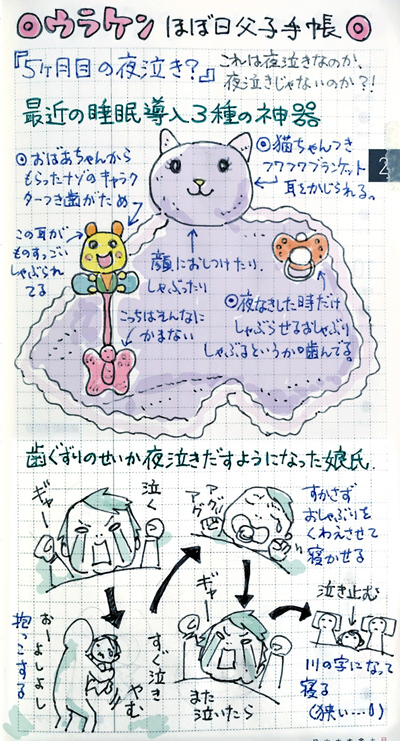 ◎ウラケン ほぼ日父子手帳◎
『5ヶ月目の夜泣き?』
これは夜泣きなのか、
夜泣きじゃないのか?!
最近の睡眠導入3種の神器
2
◎おばあちゃんから
もらったナゾのキャラク
ターつき歯がため
◎猫ちゃんつき
フワフワブランケット
耳をかじられる。
この耳が
ものすっごい
しゃぶられ
てる
顔におしつけたり、
しゃぶったり
こっちはそんなに
かまない
◎夜なきした時だけ
しゃぶらせるおしゃぶり
しゃぶるというか歯んでる。
歯ぐずりのせいか夜泣きだすようになった娘氏.
ギャー
泣く
アグアグ
すかさず
おしゃぶりを
くわえさせて
寝かせる
おーよしよし
抱っこする
すぐ泣き
やむ
ギャー
また
泣いたら
泣き止む
川の字になって
寝る
(狭い…。)